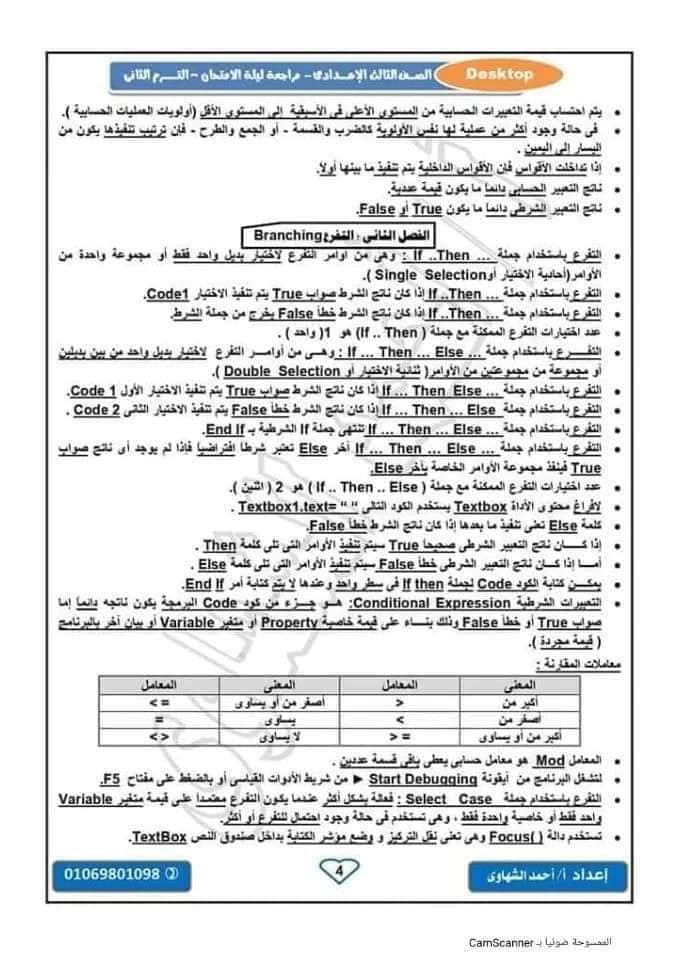 الصف الثالث الإعدادى - مراجعة ليلة الامتحان - الترم الثانى Desktop
• يتم احتساب قيمة التعبيرات الحسابية من المستوى الأعلى فى الأسبقية إلى المستوى الأقل (أولويات العمليات الحسابية ).
• فى حالة وجود أكثر من عملية لها نفس الأولوية كالضرب والقسمة - أو الجمع والطرح - فإن ترتيب تنفيذها يكون من
اليسار إلى اليمين .
• إذا تداخلت الأقواس فإن الأقواس الداخلية يتم تنفيذ ما بينها أولاً.
• ناتج التعبير الحسابى دائماً ما يكون قيمة عددية.
• ناتج التعبير الشرطى دائماً ما يكون True أو False.
الفصل الثانى : التفرع Branching
• التفرع باستخدام جملة If ..Then ... : وهى من أوامر التفرع لاختيار بديل واحد فقط أو مجموعة واحدة من
الأوامر(أحادية الاختيار أو Single Selection ).
• التفرع باستخدام جملة If ..Then ... إذا كان ناتج الشرط صواب True يتم تنفيذ الاختيار Code1.
• التفرع باستخدام جملة If ..Then ... إذا كان ناتج الشرط خطأ False يخرج من جملة الشرط.
• عدد اختيارات التفرع الممكنة مع جملة ( If .. Then) هو 1( واحد ) .
• التفرع باستخدام جملة If ... Then ... Else ... : وهى من أوامر التفرع لاختيار بديل واحد من بين بديلين
أو مجموعة من مجموعتين من الأوامر( ثنائية الاختيار أو Double Selection ).
• التفرع باستخدام جملة If ... Then Else ... إذا كان ناتج الشرط صواب True يتم تنفيذ الاختيار الأول Code 1.
• التفرع باستخدام جملة If ... Then ... Else إذا كان ناتج الشرط خطأ False يتم تنفيذ الاختيار الثانى Code 2 .
• التفرع باستخدام جملة If ... Then ... Else ... تنتهى جملة If الشرطية بـ End If.
• التفرع باستخدام جملة If ... Then ... Else ... آخر Else تعتبر شرطاً افتراضياً فإذا لم يوجد أى ناتج صواب
True فينفذ مجموعة الأوامر الخاصة بآخر Else.
• عدد اختيارات التفرع الممكنة مع جملة ( If .. Then .. Else ) هو 2 ( اثنين ).
• لافراغ محتوى الأداة Textbox يستخدم الكود التالى Textbox1.text= “ “ .
• كلمة Else تعنى تنفيذ ما بعدها إذا كان ناتج الشرط خطأ False.
• إذا كان ناتج التعبير الشرطى صحيحاً True سيتم تنفيذ الأوامر التى تلى كلمة Then .
• أما إذا كان ناتج التعبير الشرطى خطأ False سيتم تنفيذ الأوامر التى تلى كلمة Else .
• يمكن كتابة الكود Code لجملة If then فى سطر واحد وعندها لا يتم كتابة أمر End If.
• التعبيرات الشرطية Conditional Expression: هو جزء من كود Code البرمجة يكون ناتجه دائماً إما
صواب True أو خطأ False وذلك بناء على قيمة خاصية Property أو متغير Variable أو بيان آخر بالبرنامج
( قيمة مجردة ).
معاملات المقارنة :
المعنى المعامل المعنى المعامل
أكبر من > أصغر من أو يساوى < =
أصغر من < يساوى =
أكبر من أو يساوى > = لا يساوى < >
• المعامل Mod هو معامل حسابى يعطى باقى قسمة عددين .
• لتشغل البرنامج من أيقونة Start Debugging ► من شريط الأدوات القياسى أو بالضغط على مفتاح F5.
• التفرع باستخدام جملة Select Case : فعالة بشكل أكثر عندما يكون التفرع معتمداً على قيمة متغير Variable
واحد فقط أو خاصية واحدة فقط ، وهى تستخدم فى حالة وجود احتمال للتفرع أو أكثر.
• تستخدم دالة Focus( ) وهى تعنى نقل التركيز و وضع مؤشر الكتابة بداخل صندوق النص TextBox.
إعداد أ/ أحمد الشهاوى 4 01069801098
الممسوحة ضوئيا بـ CamScanner